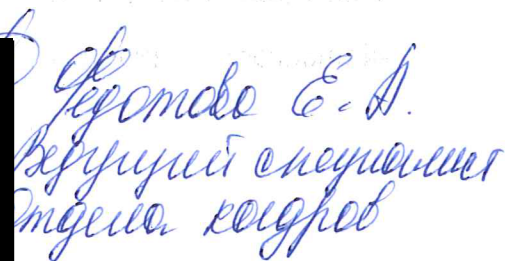 Федотова Е. А.
Ведущий специалист
отдела кадров